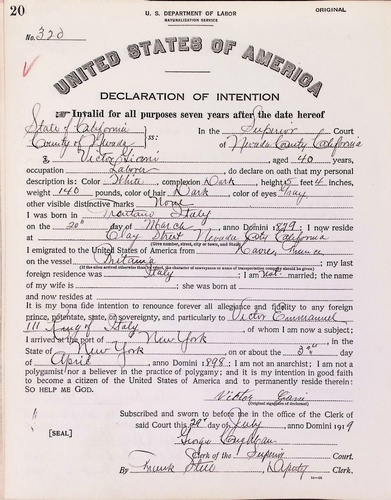 20
U. S. DEPARTMENT OF LABOR
NATURALIZATION SERVICE
ORIGINAL
No. 320
UNITED STATES OF AMERICA
DECLARATION OF INTENTION
Invalid for all purposes seven years after the date hereof
State of California
County of Nevada ss:
In the Superior Court
of Nevada County California
I, Victor, aged 40 years,
occupation Laborer, do declare on oath that my personal
description is: Color White, complexion Dark, height 5 feet 4 inches,
weight 140 pounds, color of hair Dark, color of eyes Gray
other visible distinctive marks None
I was born in Italy
on the 20th day of March, anno Domini 1879; I now reside
at Clay Street Nevada City California
(Give number, street, city or town, and State.)
I emigrated to the United States of America from Havre, France
on the vessel Britania; my last
(If the alien arrived otherwise than by vessel, the character of conveyance or name of transportation company should be given.)
foreign residence was Italy; I am not married; the name
of my wife is; she was born at
and now resides at
It is my bona fide intention to renounce forever all allegiance and fidelity to any foreign
prince, potentate, state, or sovereignty, and particularly to Victor Emmanuel
III King of Italy, of whom I am now a subject;
I arrived at the port of New York, in the
State of New York, on or about the 3rd day
of April, anno Domini 1898; I am not an anarchist; I am not a
polygamist nor a believer in the practice of polygamy; and it is my intention in good faith
to become a citizen of the United States of America and to permanently reside therein:
SO HELP ME GOD.
Victor
(Original signature of declarant)
Subscribed and sworn to before me in the office of the Clerk of
said Court this 29th day of July, anno Domini 1919
[SEAL]
George
Clerk of the Superior Court.
By Frank, Deputy Clerk.